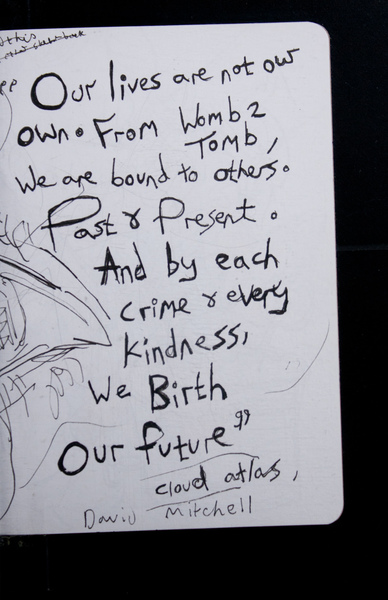 this
sketchbook
“Our lives are not our
own. From Womb 2
Tomb,
We are bound to others.
Past & Present.
And by each
crime & every
kindness,
We Birth
Our future”
cloud atlas,
David Mitchell